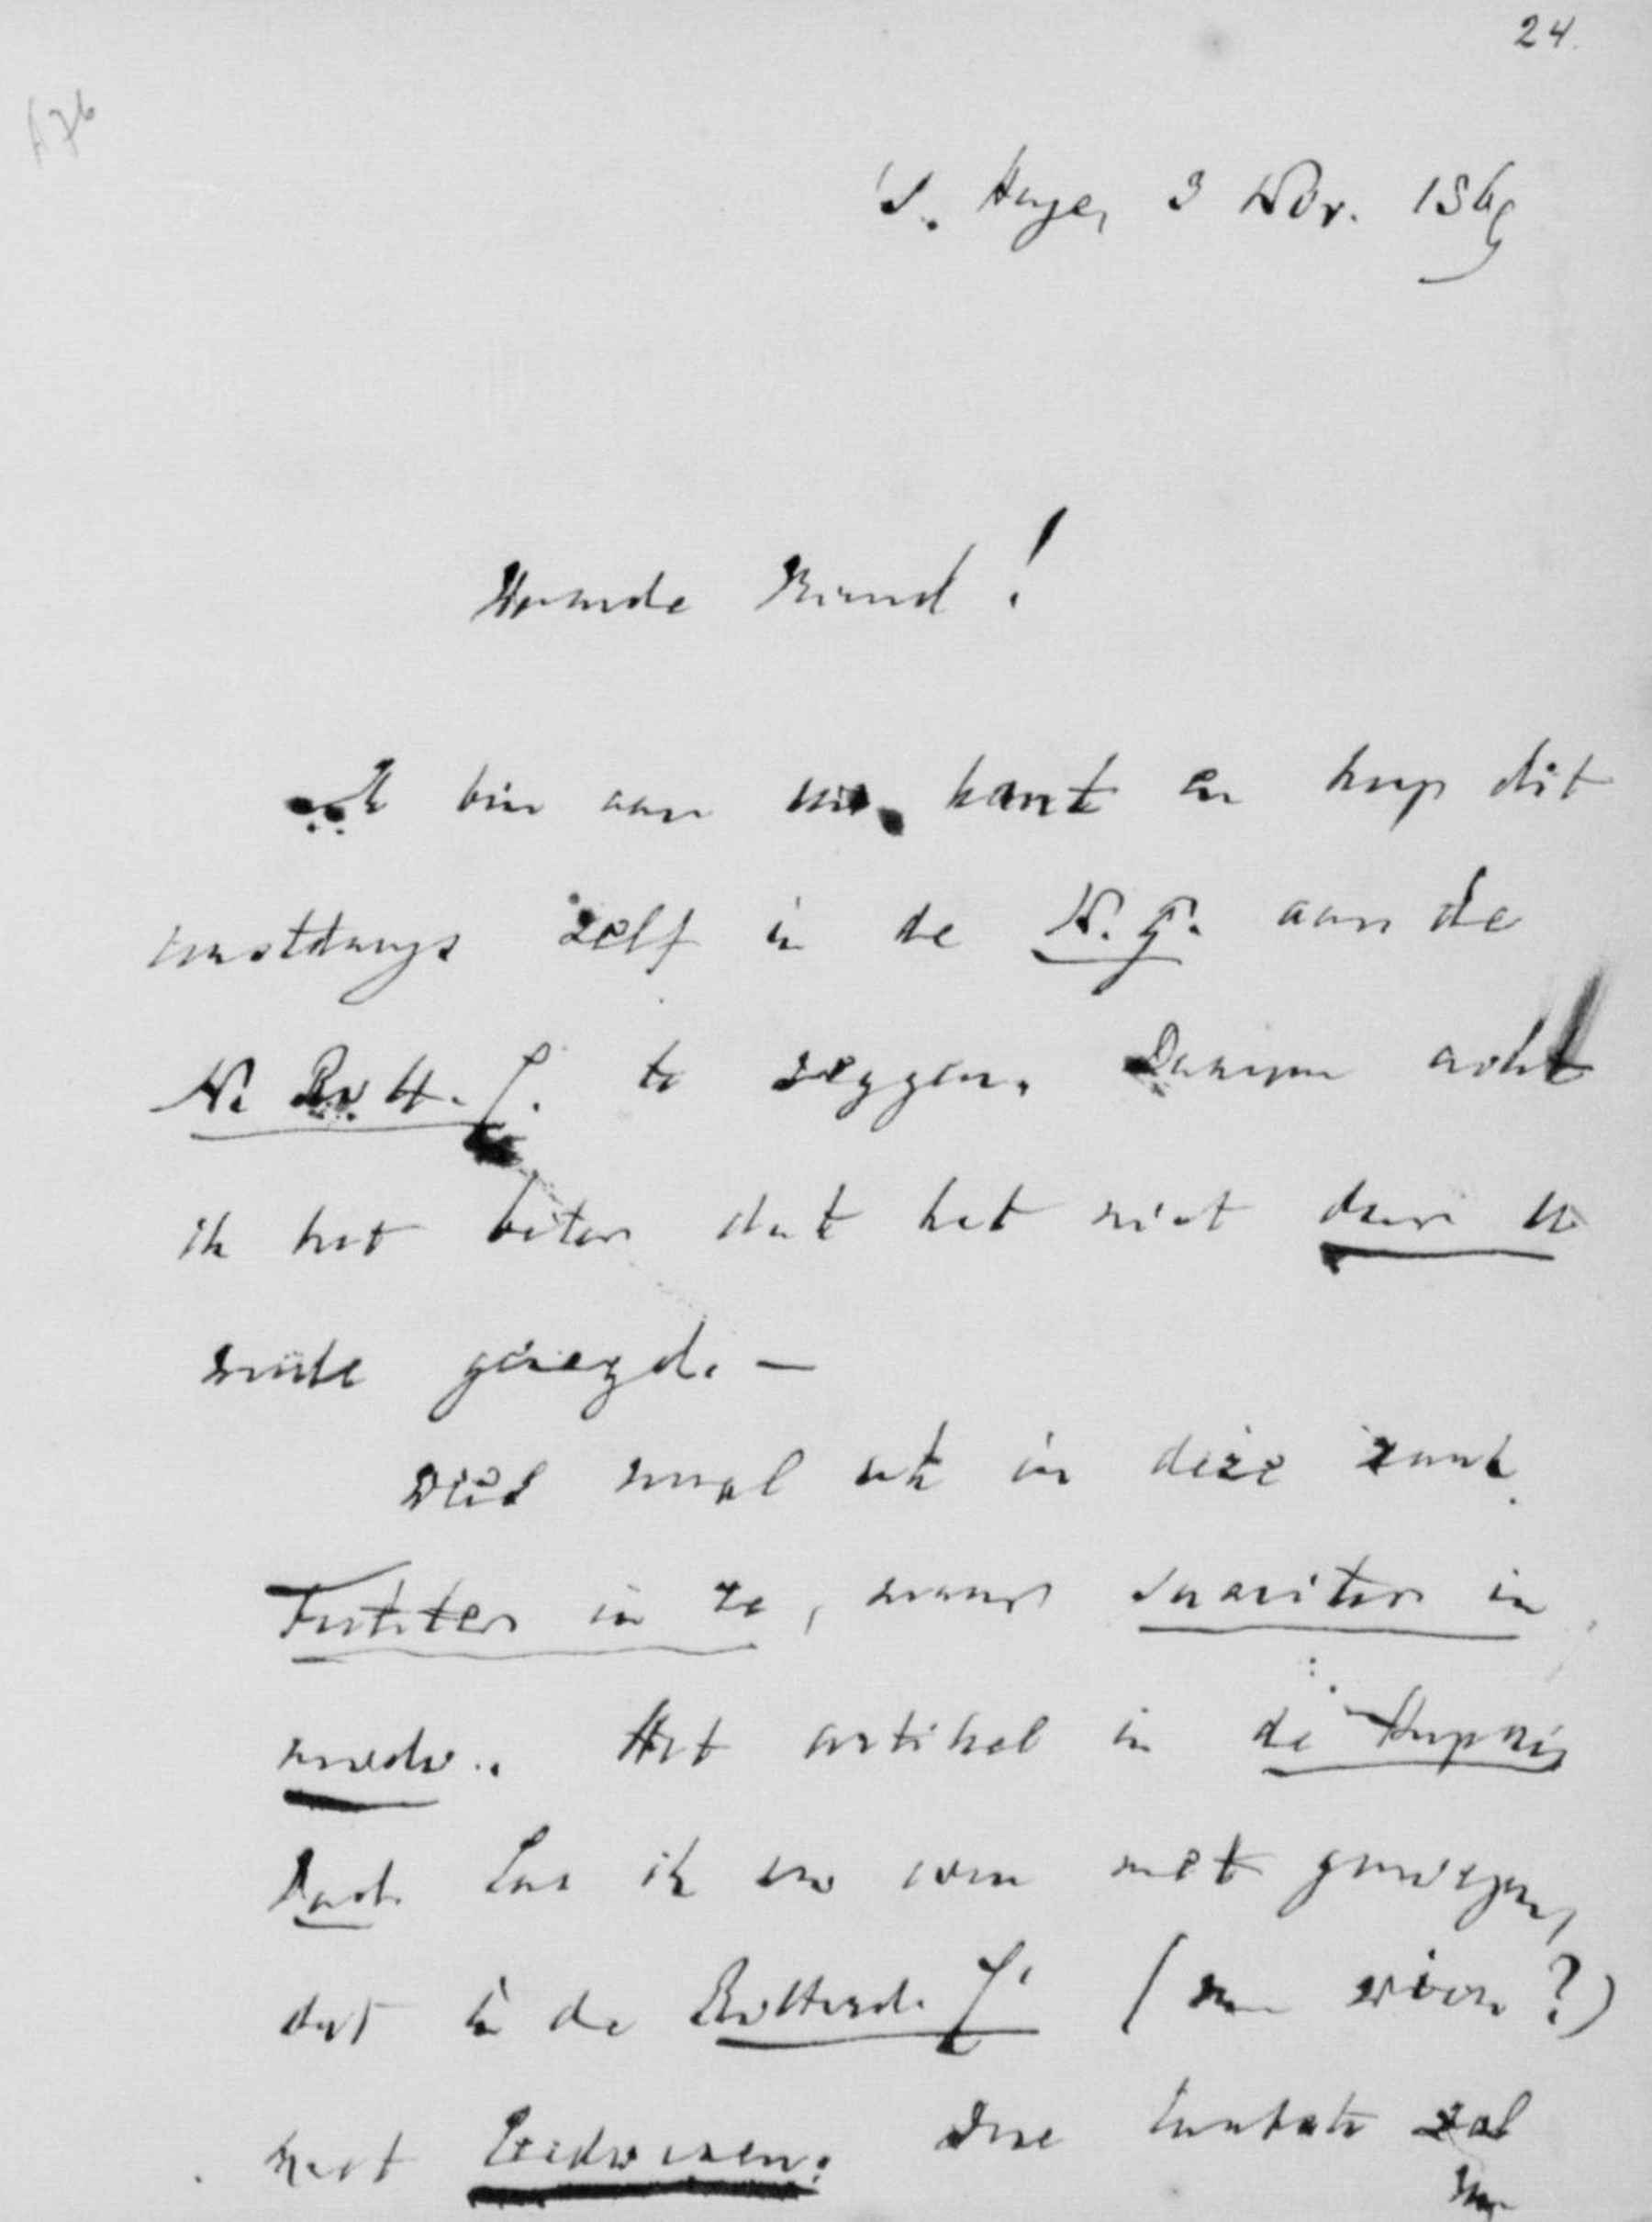 24.
's. Hage, 3 Nov. 1869
Waarde Vriend!
Ik ben aan uw kant en hoop dit
zelf in de N. G. aan de
N. Rott. C. te zeggen. Daarom acht
ik het beter dat het niet door U
worde gezegd. —
Wees vooral ook in deze zaak
Fortiter in re, maar suaviter in
modo. Het artikel in de
las ik en met genoegen,
dat in de Rotterd. C. (van wien?)
met Leedwezen. Deze zal